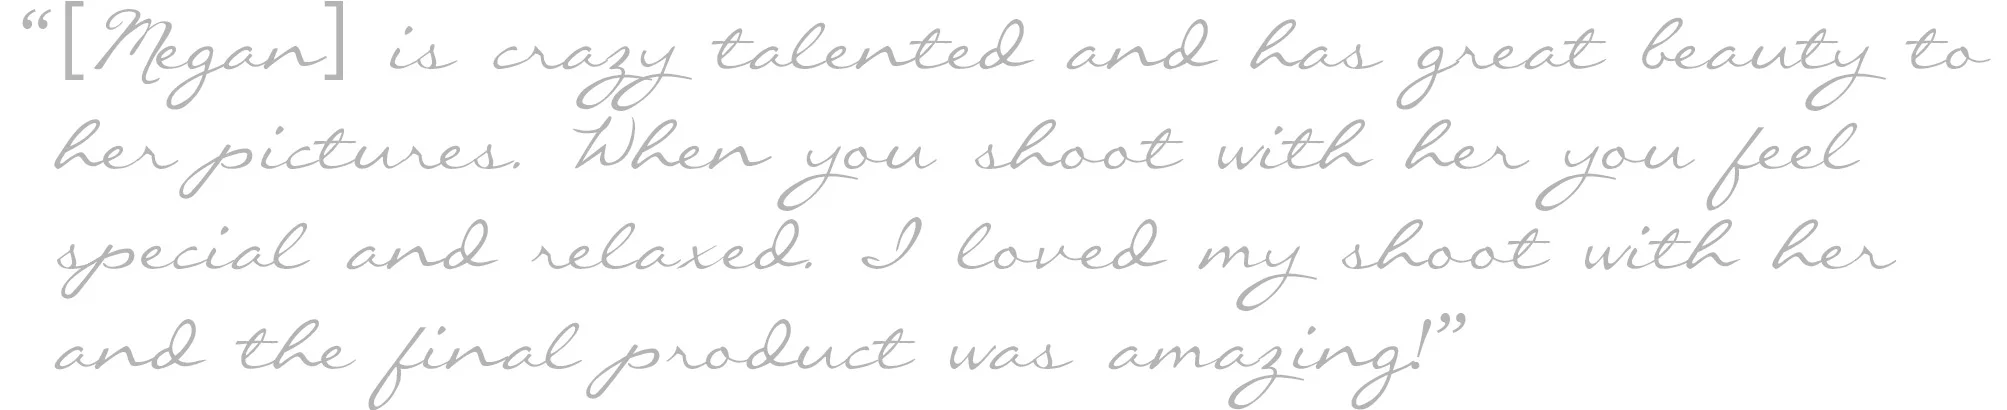 “[Megan] is crazy talented and has great beauty to
her pictures. When you shoot with her you feel
special and relaxed. I loved my shoot with her
and the final product was amazing!”